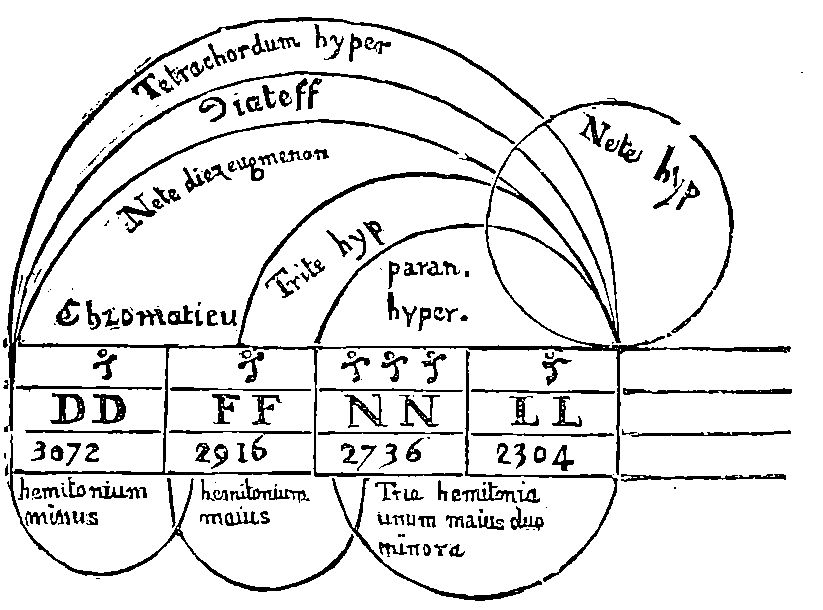 Tetrachordum hyper
Diateff
Nete diezeugmenon
Nete hyp
Trite hyp
paran.
hyper.
Chromaticu
DD FF NN LL
3072 2916 2736 2304
hemitonium
minus
hemitonium
maius
Tria hemitonia
unum maius duo
minora